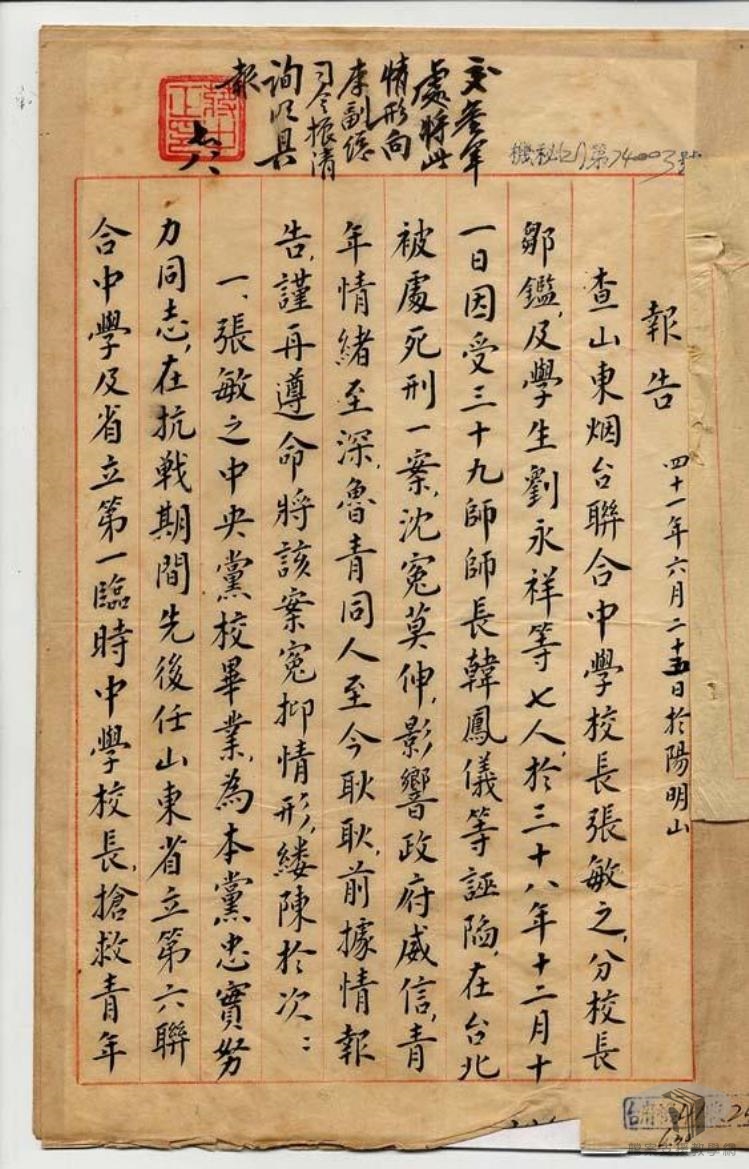 交參軍
處將此
情形向
李副總
司令振清
詢明具
報
機秘(乙)第74-0003號
報告 四十一年六月二十五日於陽明山
查山東烟台聯合中學校長張敏之,分校長
鄒鑑,及學生劉永祥等七人,於三十八年十二月十
一日因受三十九師師長韓鳳儀等誣陷,在台北
被處死刑一案,沈冤莫伸,影響政府威信,青
年情緒至深,魯青同人至今耿耿,前據情報
告,謹再遵命將該案冤抑情形,縷陳於次:
一、張敏之中央黨校畢業,為本黨忠實努
力同志,在抗戰期間先後任山東省立第六聯
合中學及省立第一臨時中學校長,搶救青年